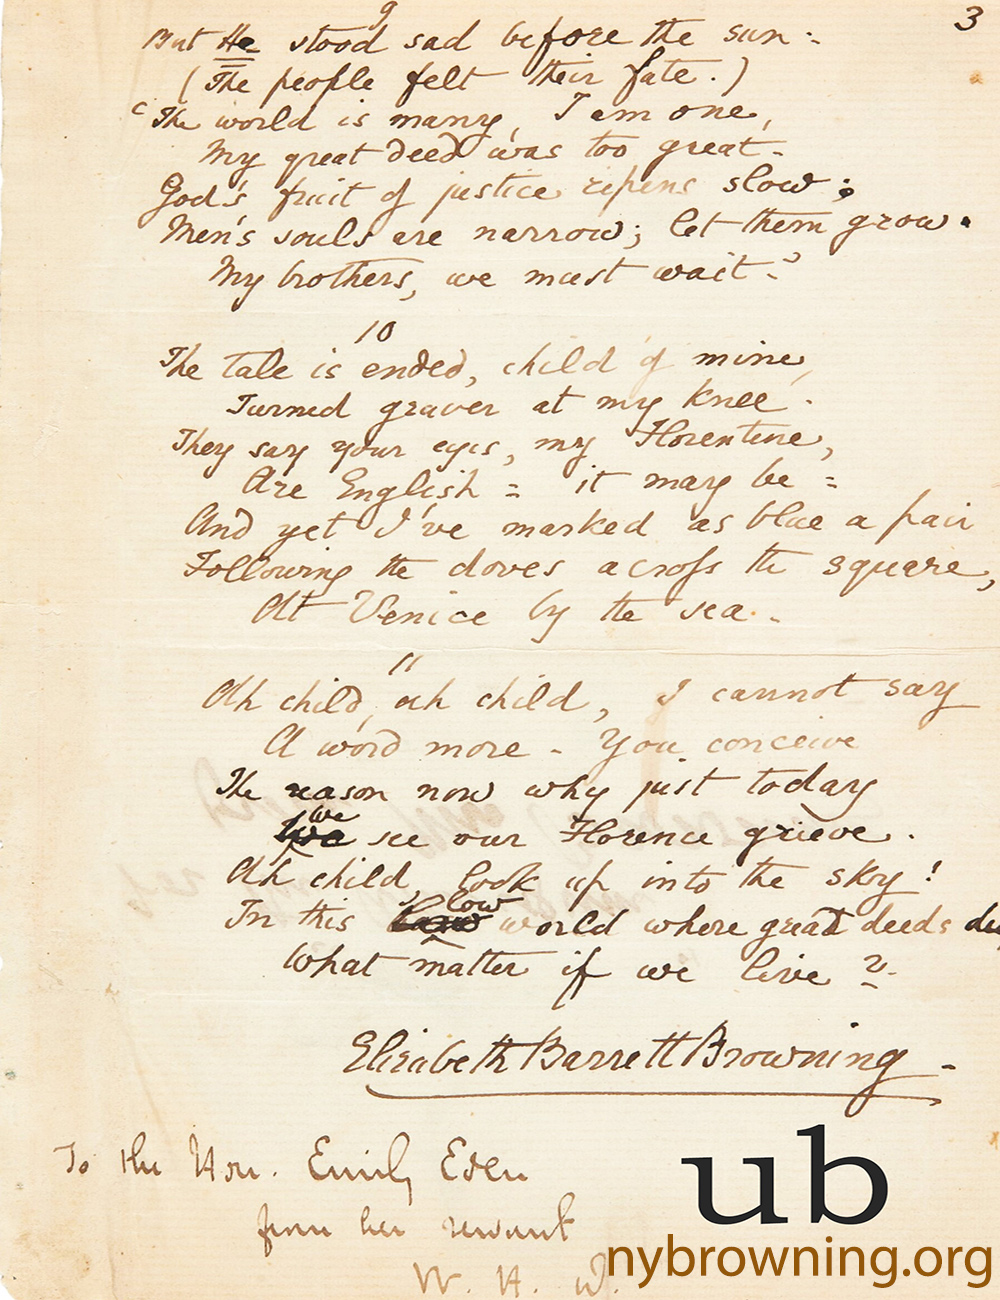 9
3
But He stood sad before the sun:
(The people felt their fate.)
"The world is many, I am one,
My great deed was too great.
God's fruit of justice ripens slow;
Men's souls are narrow; let them grow.
My brothers, we must wait."
10
The tale is ended, child of mine,
Turned graver at my knee.
They say your eyes, my Florentine,
Are English = it may be =
And yet I've marked as blue a pair
Following the doves across the square,
At Venice by the sea.
11
Ah child, ah child, I cannot say
A word more - You conceive
The reason now why just today
we
see our Florence grieve.
Ah child, look up into the sky!
low
In this world where great deeds
What matter if we live?
Elizabeth Barrett Browning -
To the Hon. Emily Eden
from her servant
W. H.
ub
nybrowning.org